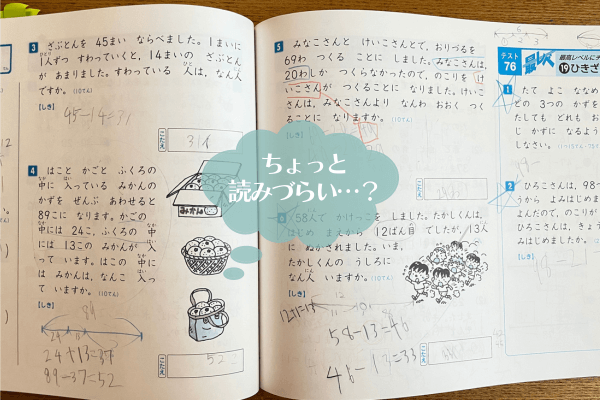 3 ざぶとんを 45まい ならべました。1まいに
1人ずつ すわっていくと、14まいの ざぶとん
が あまりました。すわっている 人は、なん人
ですか。(10てん)
[しき]
45-14=31
こたえ 31人
4 はこと かごと ふくろの
中に 入っている みかんの
かずを ぜんぶ あわせると
89こに なります。かごの
中には 24こ、ふくろの 中
には 13この みかんが 入
って います。はこの 中に
は みかんは、なんこ 入っ
て いますか。(10てん)
みかん
[しき]
89
24+13=37
89-37=52
こたえ 52こ
ちょっと
読みづらい…?
5 みなこさんと けいこさんとで、おりづるを
69わ つくる ことに しました。みなこさんは、
20わしか つくらなかったので、のこりを け
いこさんが つくることに なりました。けいこ
さんは、みなこさんより なんわ おおく つく
ることに なりますか。(10てん)
[しき]
こたえ
58人で かけっこを しました。たかしくんは、
はじめ まえから 12ばん目 でしたが、13人
に ぬかされました。いま、
たかしくんの うしろに
なん人 いますか。(10てん)
[しき]
58-13=46
46-13=33
こたえ
テスト
76
最レベ
最高レベルにチ
⑲ひきざ
1 たて よこ ななめ
の 3つの かずを
たしても どれも お
じ かずに なるよう
しなさい。
2 ひろこさんは、98ペ
うから よみはじめま
よんだので、のこりが
ひろこさんは、きょう
みはじめましたか。